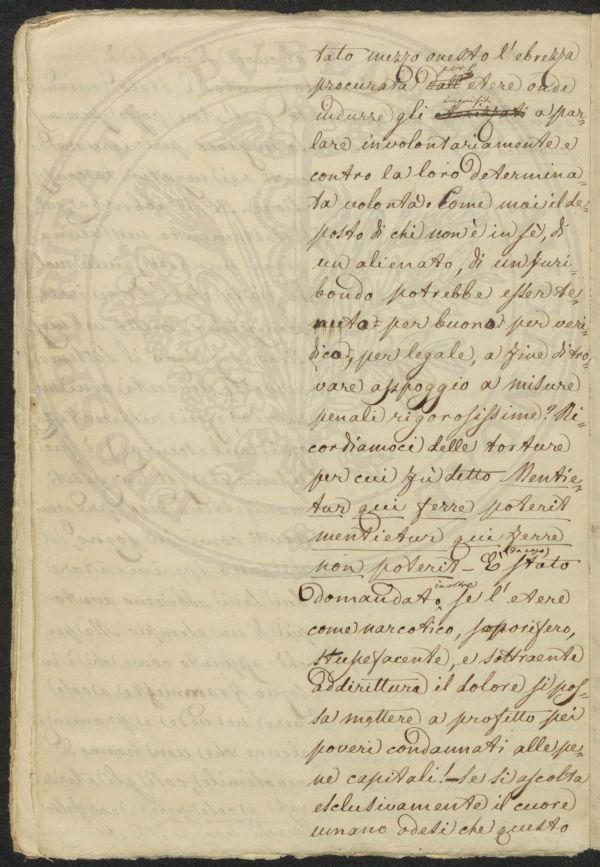 tato mezzo onesto l'ebrezza
procurata dall' per l' etere onde
indurre gli inquisiti a par=
lare involontariamente e
contro la loro determina=
ta volontà. Come mai il de=
posto di chi non è in sè, di
un alienato, di un furi=
bondo potrebbe esser te=
nuto per buono per veri=
dico, per legale, a fine di tro=
vare appoggio a misure
penali rigorosissime? Ri=
cordiamoci delle torture
per cui fù detto Mentie=
tur qui ferre poterit
mentietur qui ferre
non poterit – È stato
domandato inoltre se l'etere
come narcotico, soporifero,
stupefacente, e sottraente
addirittura il dolore si pos=
sa mettere a profitto pei
poveri condannati alle pe=
ne capitali! – Se si ascolta
esclusivamente il cuore
umano odesi che questo